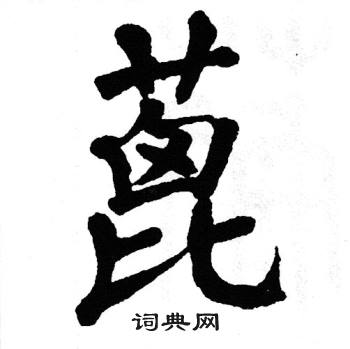 蓖
词典网